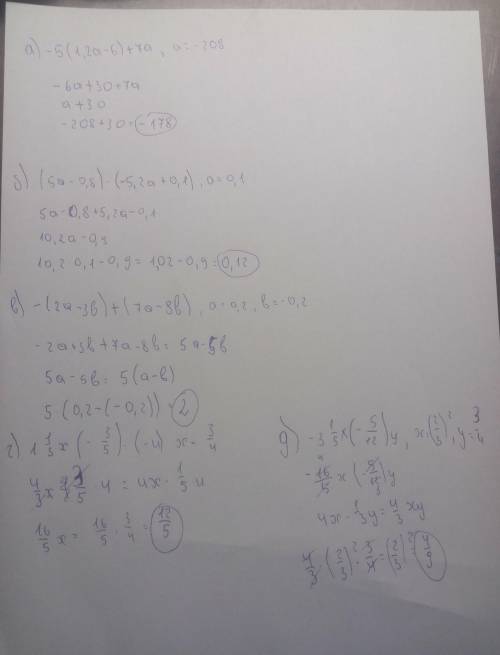 а) -5(1,2a-6)+7a, a=-208
-6a+30+7a
a+30
-208+30=-178
б) (5a-0,8)-(-5,2a+0,1), a=0,1
5a-0,8+5,2a-0,1
10,2a-0,9
10,2·0,1-0,9=1,02-0,9=0,12
в) -(2a-3b)+(7a-8b), a=0,2, b=-0,2
-2a+3b+7a-8b=5a-5b
5a-5b=5(a-b)
5·(0,2-(-0,2))=2
г) 1 1/3 x (-3/5)·(-4) x= 3/4
4/3 x · 3/5 · 4 = 4x· 1/5 ·4
16/5 x = 16/5 · 3/4 = 12/5
д) -3 1/5 x(-5/12)y, x=(2/3)², y=3/4
-16/5 x (-5/12)y
4x· 1/3 y= 4/3 xy
4/3·(2/3)²·3/4=(2/3)²=4/9